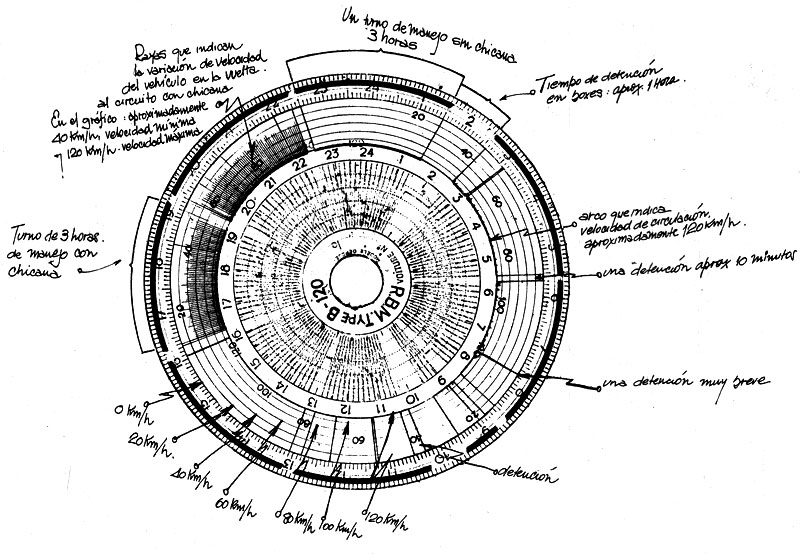 Un turno de manejo sin chicana
3 horas
Rayas que indican
la variación de velocidad
del vehículo en la vuelta.
al circuito con chicana
En el gráfico: aproximadamente
40 Km/h. velocidad mínima
y 120 Km/h. velocidad máxima
Tiempo de detención
en boxes: aprox. 1 Hora.
arco que indica
velocidad de circulación.
aproximadamente 120 Km/h.
una detención aprox 10 minutos
una detención muy breve
detención
Turno de 3 horas.
de manejo con
chicana
0 Km/h
20 Km/h.
40 Km/h
60 Km/h
80 Km/h
100 Km/h
120 Km/h
R.B.M. TYPE B-120
1
2
3
4
5
6
7
8
9
10
11
12
13
14
15
16
17
18
19
20
21
22
23
24
20
40
60
80
100